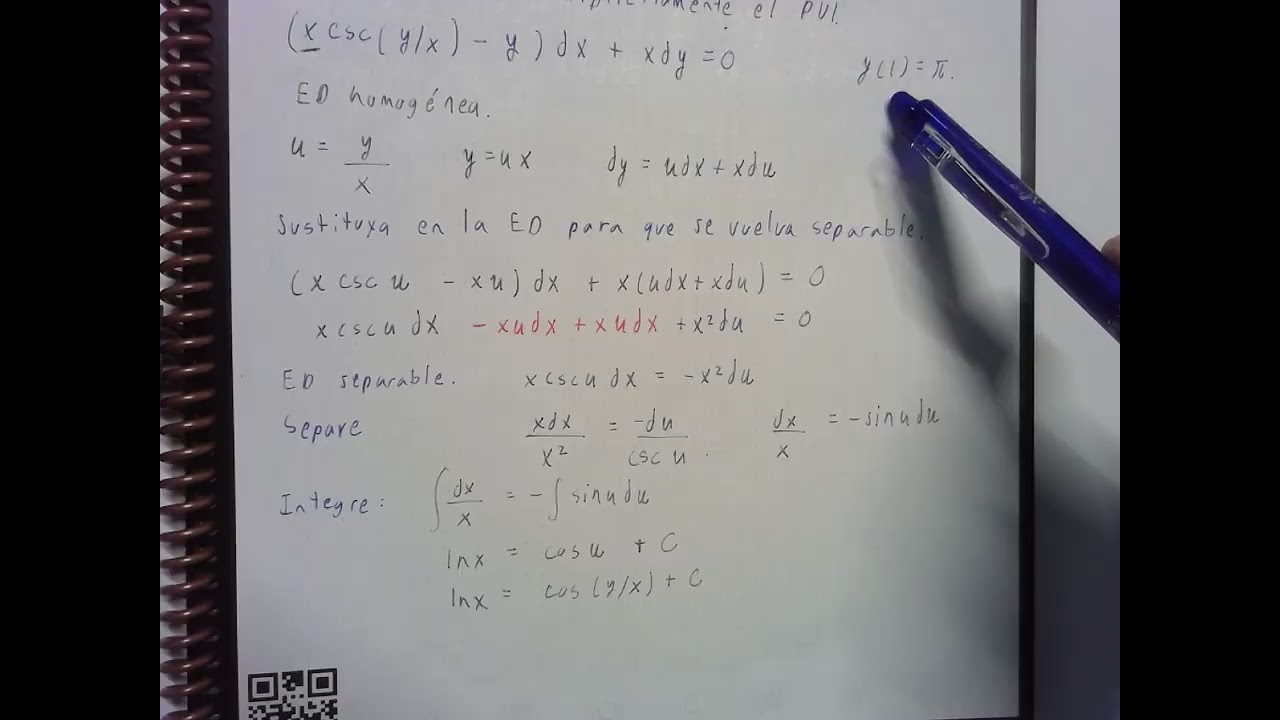 el PVI.
(x csc(y/x) - y) dx + xdy = 0 y(1) = π.
ED homogénea.
u = y/x y = ux dy = udx + xdu
Sustituya en la ED para que se vuelva separable.
(x csc u - xu) dx + x(udx + xdu) = 0
x csc u dx - xudx + xudx + x²du = 0
ED separable. x csc u dx = -x²du
Separe xdx/x² = -du/csc u . dx/x = -sinudu
Integre: ∫ dx/x = -∫ sinudu
lnx = cosu + C
lnx = cos(y/x) + C